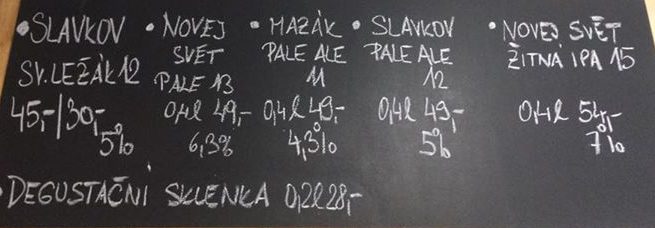 • SLAVKOV
SV. LEŽÁK 12
45,-/30,-
5%
• NOVEJ
SVĚT
PALE 13
0,4l 49,-
6,3%
• MAZÁK
PALE ALE
11
0,4l 49,-
4,3%
• SLAVKOV
PALE ALE
12
0,4l 49,-
5%
• NOVEJ SVĚT
ŽITNÁ IPA 15
0,4l 54,-
7%
• DEGUSTAČNÍ SKLENKA 0,2l 28,-